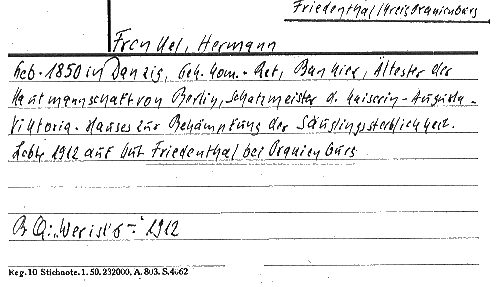 Friedenthal/Kreis Oranienburg
Frenkel, Hermann
Geb. 1850 in Danzig, Geh. Kom.-Rat, Bankier, Ältester der
Kaufmannschaft von Berlin, Schatzmeister d. Kaiserin-Augusta-
Viktoria-Hauses zur Bekämpfung der Säuglingssterblichkeit.
Lebte 1912 auf Gut Friedenthal bei Oranienburg
B Q: "Wer ist's-" 1912
Reg. 10 Stichnote. 1. 50. 232000. A. 803. S. 4. 62